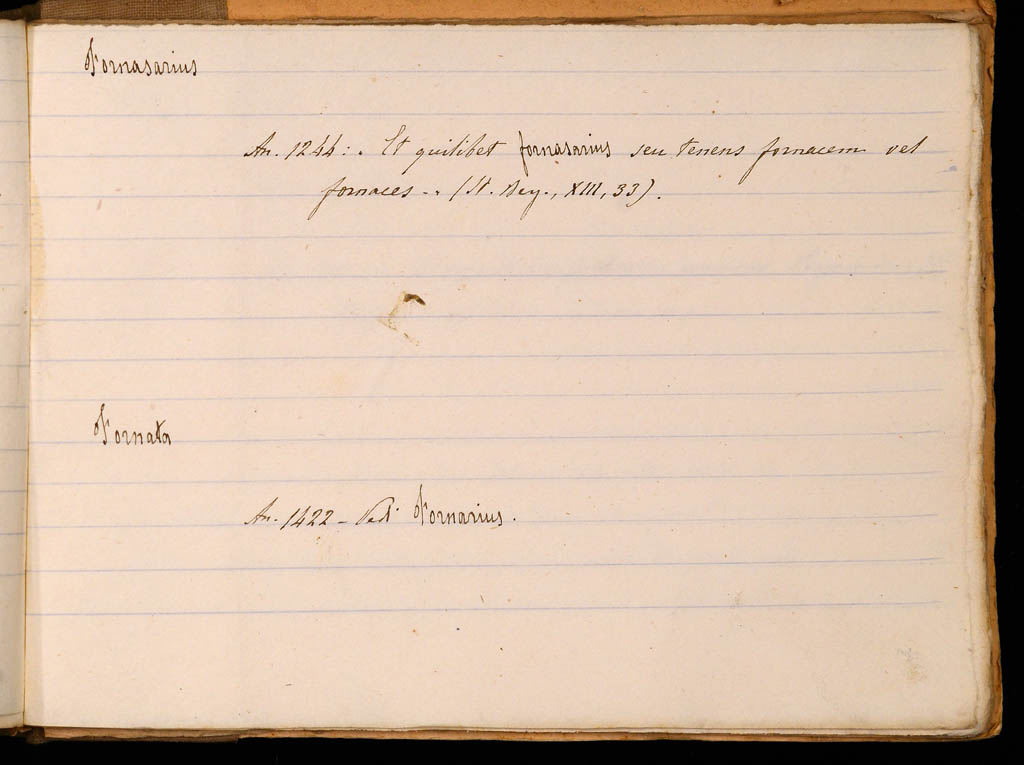 Fornasarius
An. 1244: . Et quilibet fornasarius seu tenens fornacem vel
fornaces .. (St. , XIII, 33).
Fornata
An. 1422 - Vedi Fornarius.